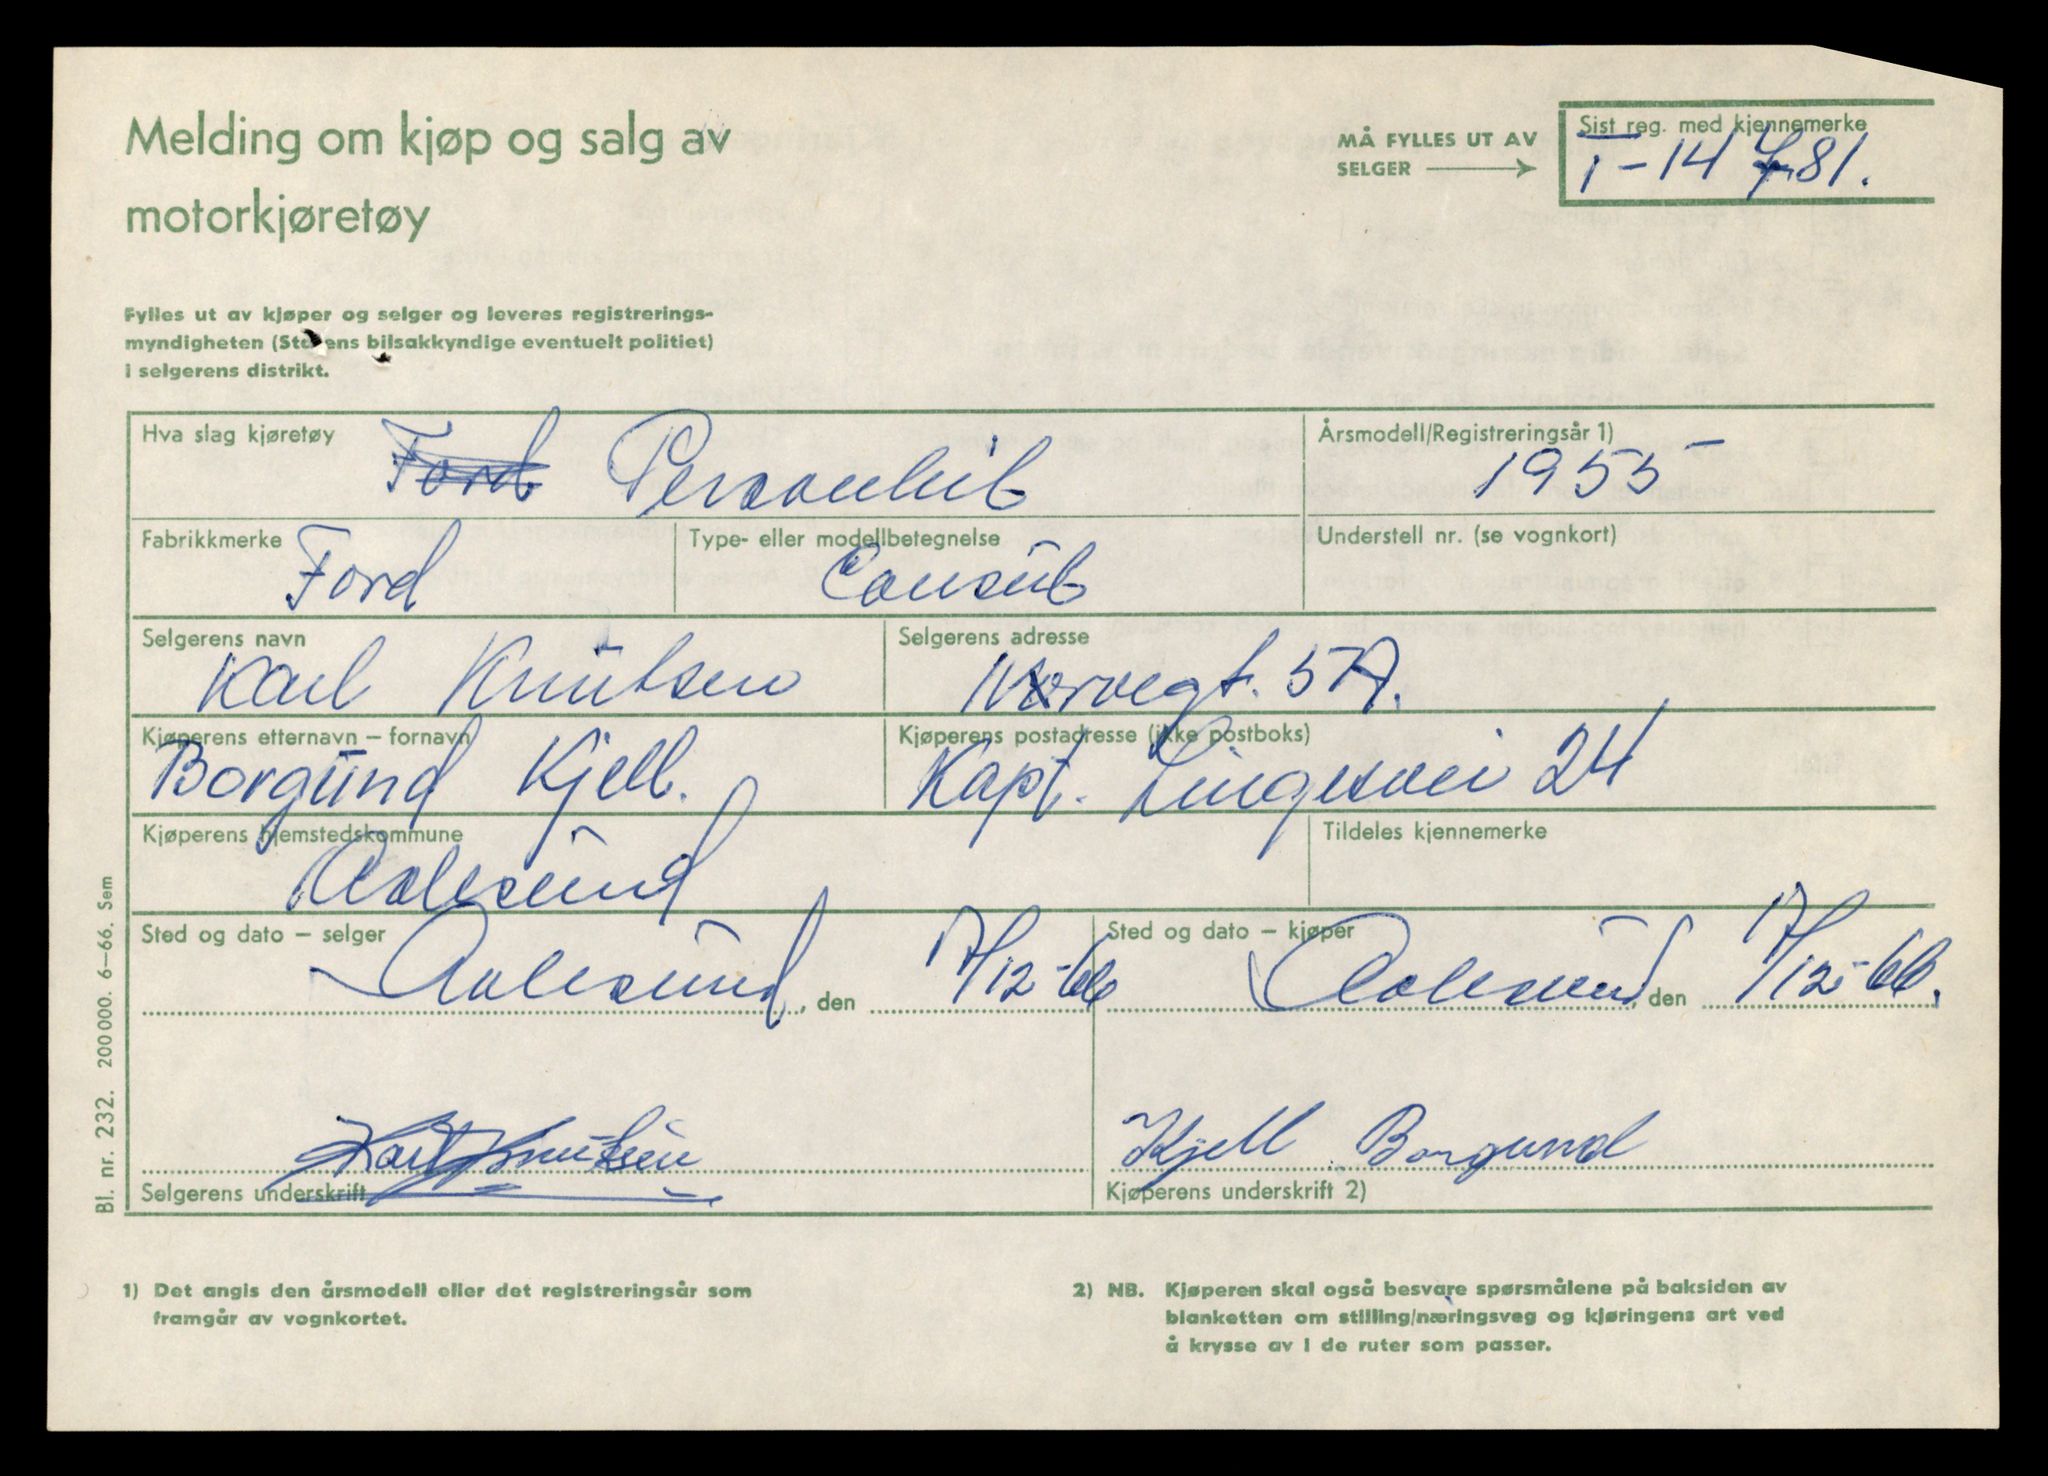 Melding om kjøp og salg av
motorkjøretøy
MÅ FYLLES UT AV
SELGER
Sist reg. med kjennemerke
T-14781.
Fylles ut av kjøper og selger og leveres registrerings-
myndigheten (Statens bilsakkyndige eventuelt politiet)
i selgerens distrikt.
Hva slag kjøretøy Ford Personbil
Årsmodell/Registreringsår 1) 1955
Fabrikkmerke Ford
Type- eller modellbetegnelse Consul
Understell nr. (se vognkort)
Selgerens navn Karl Knutsen
Selgerens adresse 5A.
Kjøperens etternavn – fornavn Borgund Kjell.
Kjøperens postadresse (ikke postboks) Kapt. Lingesvei 24
Kjøperens hjemstedskommune Aalesund
Tildeles kjennemerke
Sted og dato – selger Aalesund, den 17/12-66
Sted og dato – kjøper Aalesund, den 17/12-66.
Karl Knutsen
Selgerens underskrift
Kjell Borgund
Kjøperens underskrift 2)
Bl. nr. 232. 200 000. 6–66. Sem
1) Det angis den årsmodell eller det registreringsår som
framgår av vognkortet.
2) NB. Kjøperen skal også besvare spørsmålene på baksiden av
blanketten om stilling/næringsveg og kjøringens art ved
å krysse av i de ruter som passer.